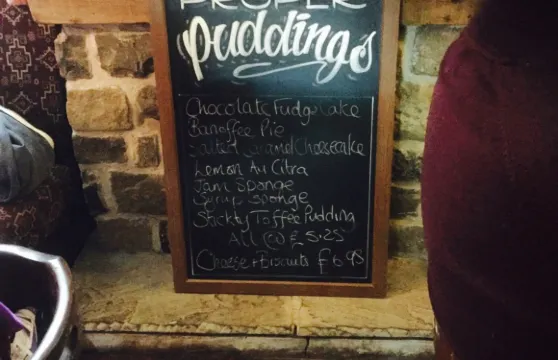 PROPER
puddings
Chocolate Fudge Cake
Banoffee Pie
Salted Caramel Cheesecake
Lemon Au Citra
Jam Sponge
Syrup Sponge
Stickty Toffee Pudding
All @ £5.25
Cheese + Biscuits £6.95